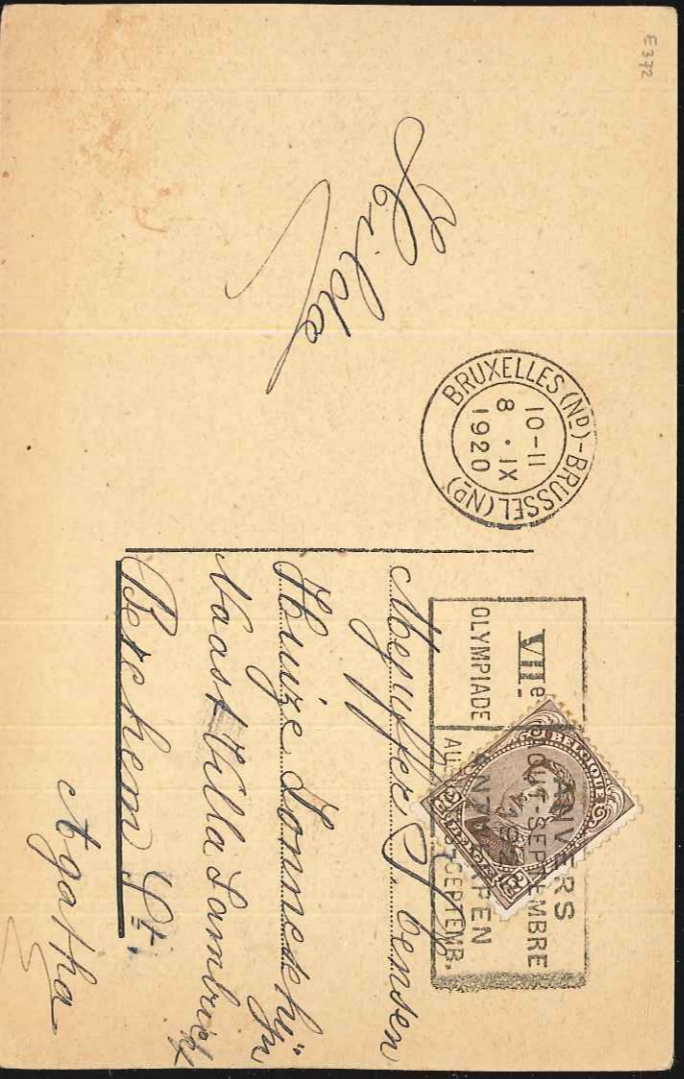 E372
Hilda
BRUXELLES (ND)-BRUSSEL (ND)
10-11
8 · IX
1920
VIIe
OLYMPIADE
ANVERS
AOUT-SEPTEMBRE
192
ANTWERPEN
SEPTEMB.
BELGIQUE
Mejuffer J. Oensen
Huize Zonneschijn
Naast Villa Lambricht
Berchem St.
Agatha